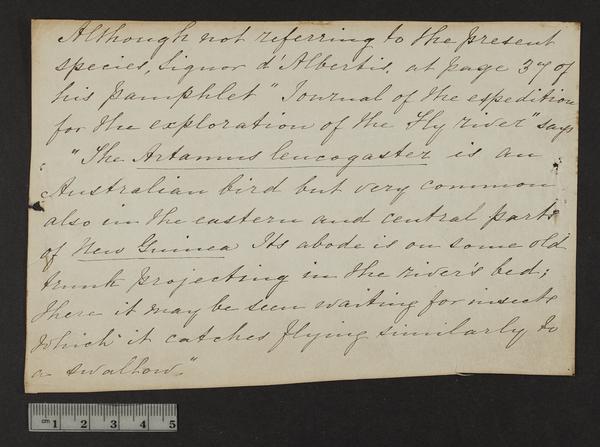 Although not referring to the present
species, Signor d'Albertis, at page 37 of
his pamphlet "Journal of the expedition
for the exploration of the Fly river" says
: "The Artamus leucogaster is an
Australian bird but very common
also in the eastern and central parts
of New Guinea Its abode is on some old
trunk projecting in the river's bed;
there it may be seen waiting for insects
which it catches flying similarly to
a swallow."
cm 1 2 3 4 5